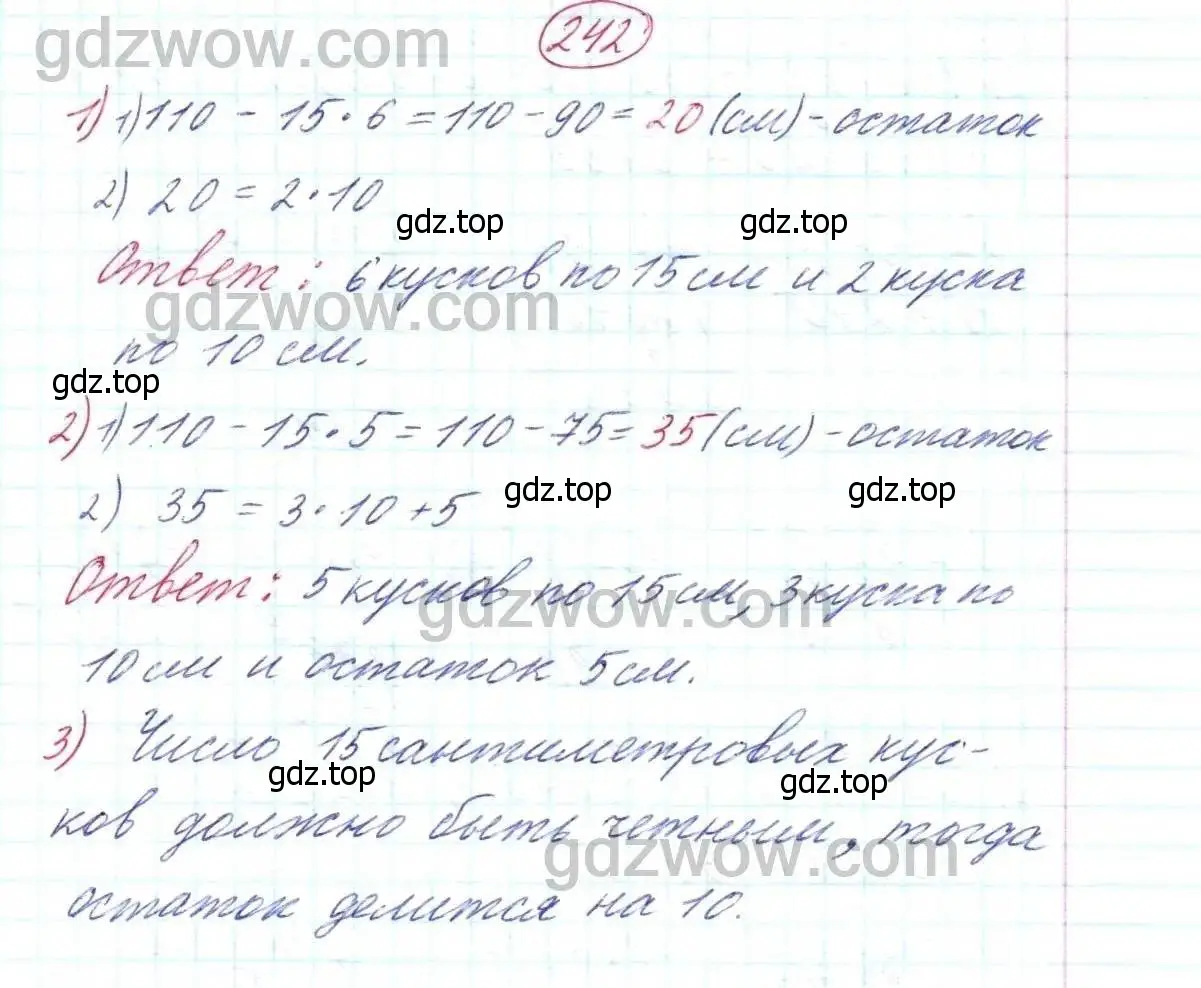 gdzwow.com
242
1) 1) 110 - 15·6 = 110 - 90 = 20 (см) - остаток
2) 20 = 2·10
gdz.top gdz.top
Ответ: 6 кусков по 15 см и 2 куска
gdzwow.com
по 10 см.
gdz.top
2) 1) 110 - 15·5 = 110 - 75 = 35 (см) - остаток
2) 35 = 3·10 + 5
gdz.top gdz.top
Ответ: 5 кусков по 15 см, 3 куска по
gdzwow.com
10 см и остаток 5 см.
3) Число 15 сантиметровых кус-
gdz.top gdz.top
ков должно быть четным, тогда
gdzwow.com
остаток делится на 10.